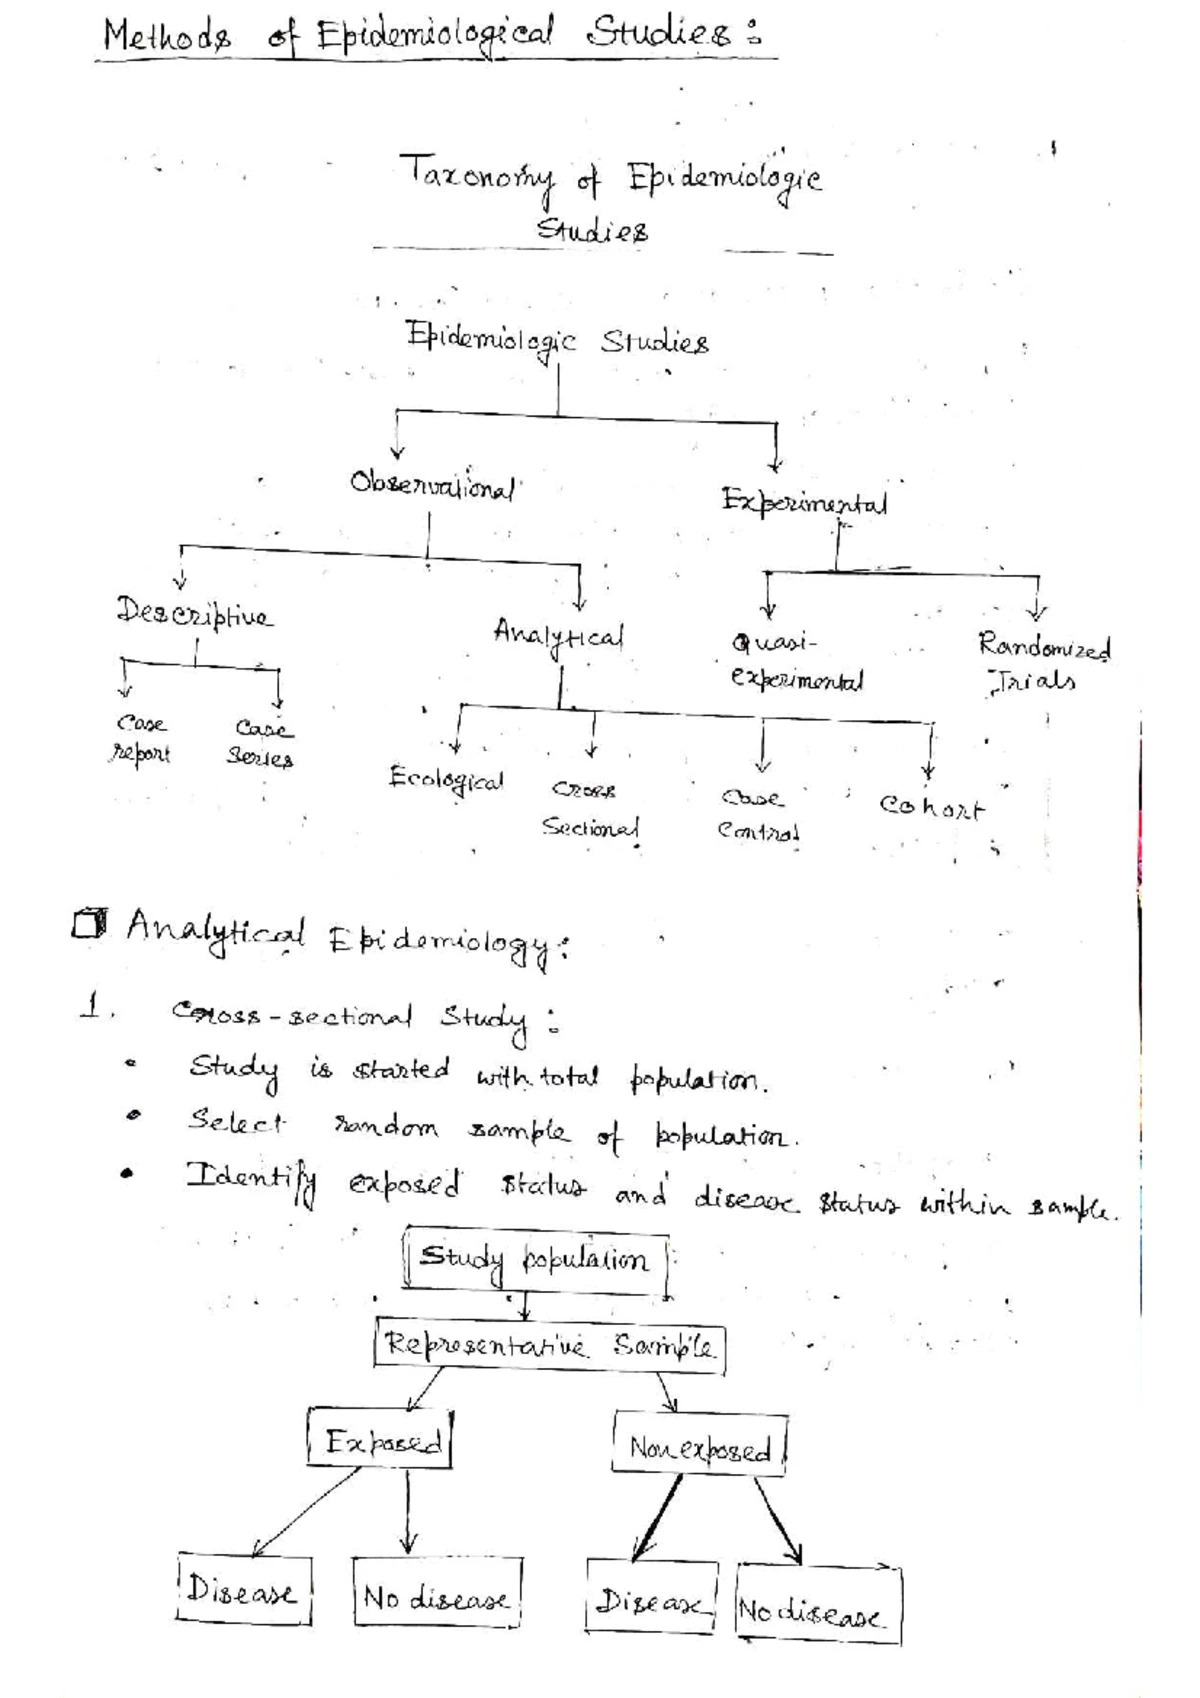 Methods of Epidemiological Studies:
Taxonomy of Epidemiologic
Studies
Epidemiologic Studies
Observational
Experimental
Descriptive
Analytical
Quasi-
experimental
Randomized
Trials
Case
report
Case
Series
Ecological
Cross
Sectional
Case
Control
Cohort
Analytical Epidemiology:
1. Cross-sectional Study:
• Study is started with total population.
• Select random sample of population.
• Identify exposed status and disease status within sample.
Study population
Representative Sample
Exposed
Nonexposed
Disease
No disease
Disease
No disease